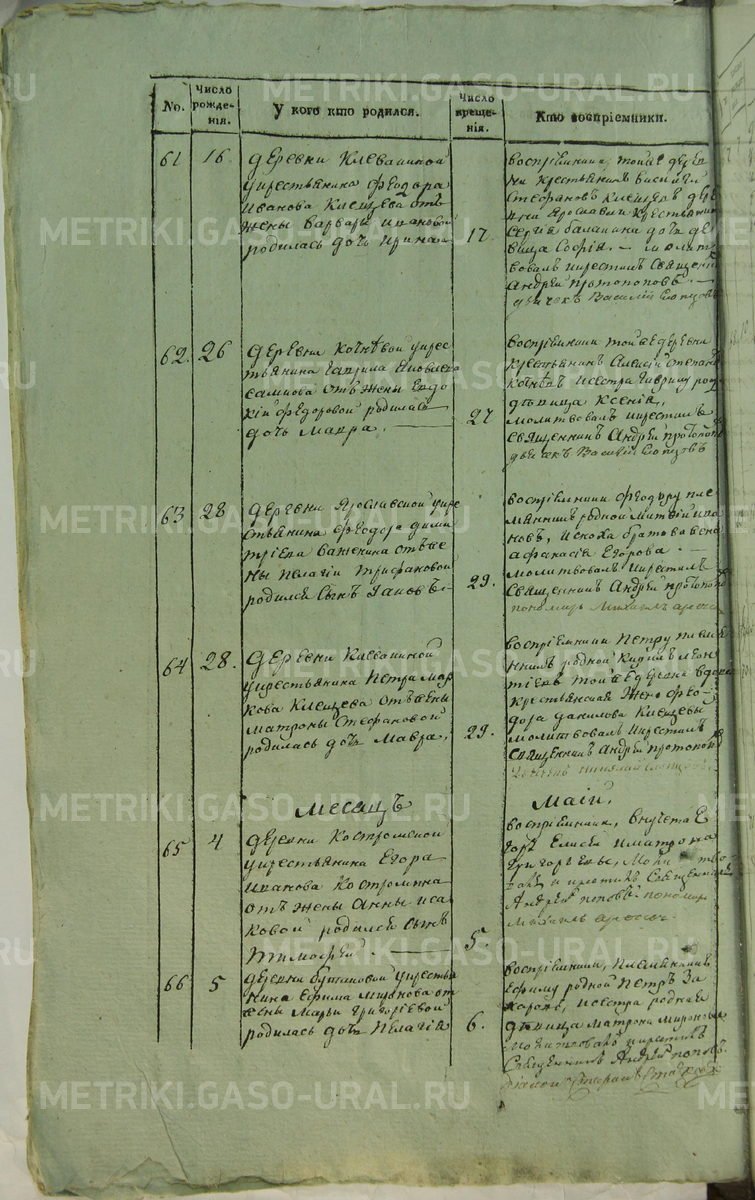 No.
Число рожде-нія.
У кого кто родился.
Число креще-нія.
Кто воспріемники.
61
16
деревни Клевакиной
у крестьянина Феодора
Иванова Клещева отъ
жены Варвары Ивановой
родилась дочь Ирина
17
воспріемники, тойже дерев
ни крестьянинъ Василій
Стефановъ Клещевъ дере
вни Ярославской крестьянина
Сергія дочь де
вица Софія. — молит
вовалъ и крестилъ Священникъ
Андрей Протопоповъ. —
дьячекъ Василій
62.
26
деревни Кочневой у крес
тьянина Гаврила Яковлева
отъ жены Евдо
кіи Федоровой родилась
дочь Мавра. —
27
воспріемники тойже деревни
крестьянинъ Алексій Степановъ
Кочневъ и сестра Гаврилу род
девица Ксенія,
молитвовалъ и крестилъ
священникъ Андрей Протопопо
дьячекъ Василій
63
28
деревни Ярославской у кре
стьянина Феодора Дими
тріева Баженина отъ же
ны Пелагіи Трифановой
родился сынъ Іаковъ
29.
воспріемники Феодору пле
мянникъ родной Матвій Ива
новъ, и сноха братова жена
Афанасія Егорова. —
молитвовалъ и крестилъ
Священникъ Андрей Протопопо
пономарь Михаилъ
64
28.
деревни Клевакиной
у крестьянина Петра Мар
кова Клещева отъ жены
Матроны Стефановой
родилась дочь Мавра,
29.
воспріемники Петру племя
нникъ родной Кирилъ Леон
тіевъ тойже деревни вдова
крестьянская жена Фео-
дора Данилова Клещевы
молитвовалъ и крестилъ
Священникъ Андрей Протопопо
месяцъ
Маій,
65
4
деревни Костромской
у крестьянина Егора
Иванова Костромина
отъ жены Анны Иса
ковой родился сынъ
Тимофей. —
5.
воспріемники, внучета Е
гору Елисей и Матрона
Григорьевы, Молитво
валъ и крестилъ Священникъ
Андрей Поповъ пономарь
Михаилъ
66
5
деревни Бутаковой у крестья
нина Ефима Миронова от
жены Марьи Григоріевой
родилась дочь Пелагія
6.
воспріемники, племянникъ
Ефиму родной Петръ За
харовъ, и сестра родная
девица Матрона Миронова
молитвовалъ и крестилъ
Священникъ Андрей Поповъ
METRIKI.GASO-URAL.RU